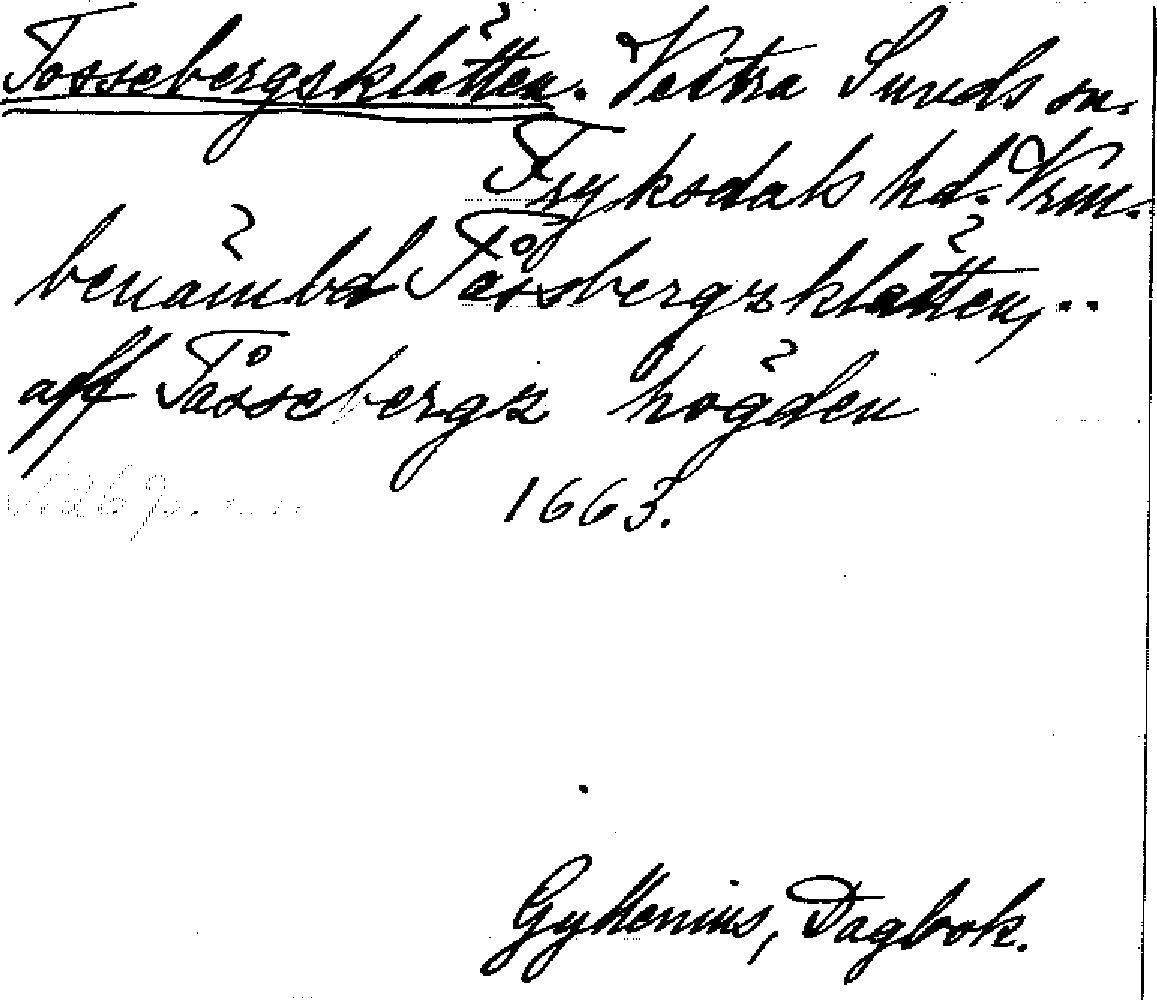 Tossebergsklätten. Västra Sunds sn.
Fryksdals hd. Vrm.
benämbd Tåssbergzklätten, ..
aff Tåssebergz högden
1663.
Gyllenius, Dagbok.